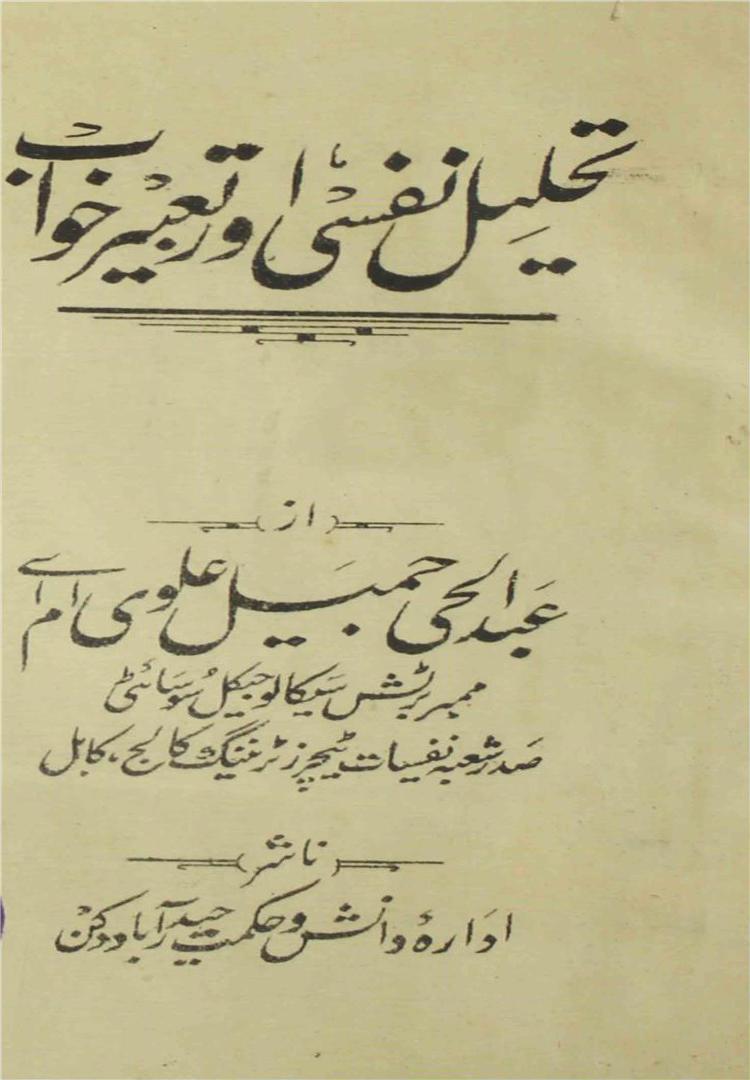 تحلیلِ نفسی اور تعبیر خواب
از
عبدالحی جمیل علوی ام اے
ممبر برٹش سیکالوجیکل سوسائٹی
صدر شعبہ نفسیات ٹیچرز ٹریننگ کالج، کابل
ناشر
ادارۂ دانش و حکمت حیدرآباد دکن